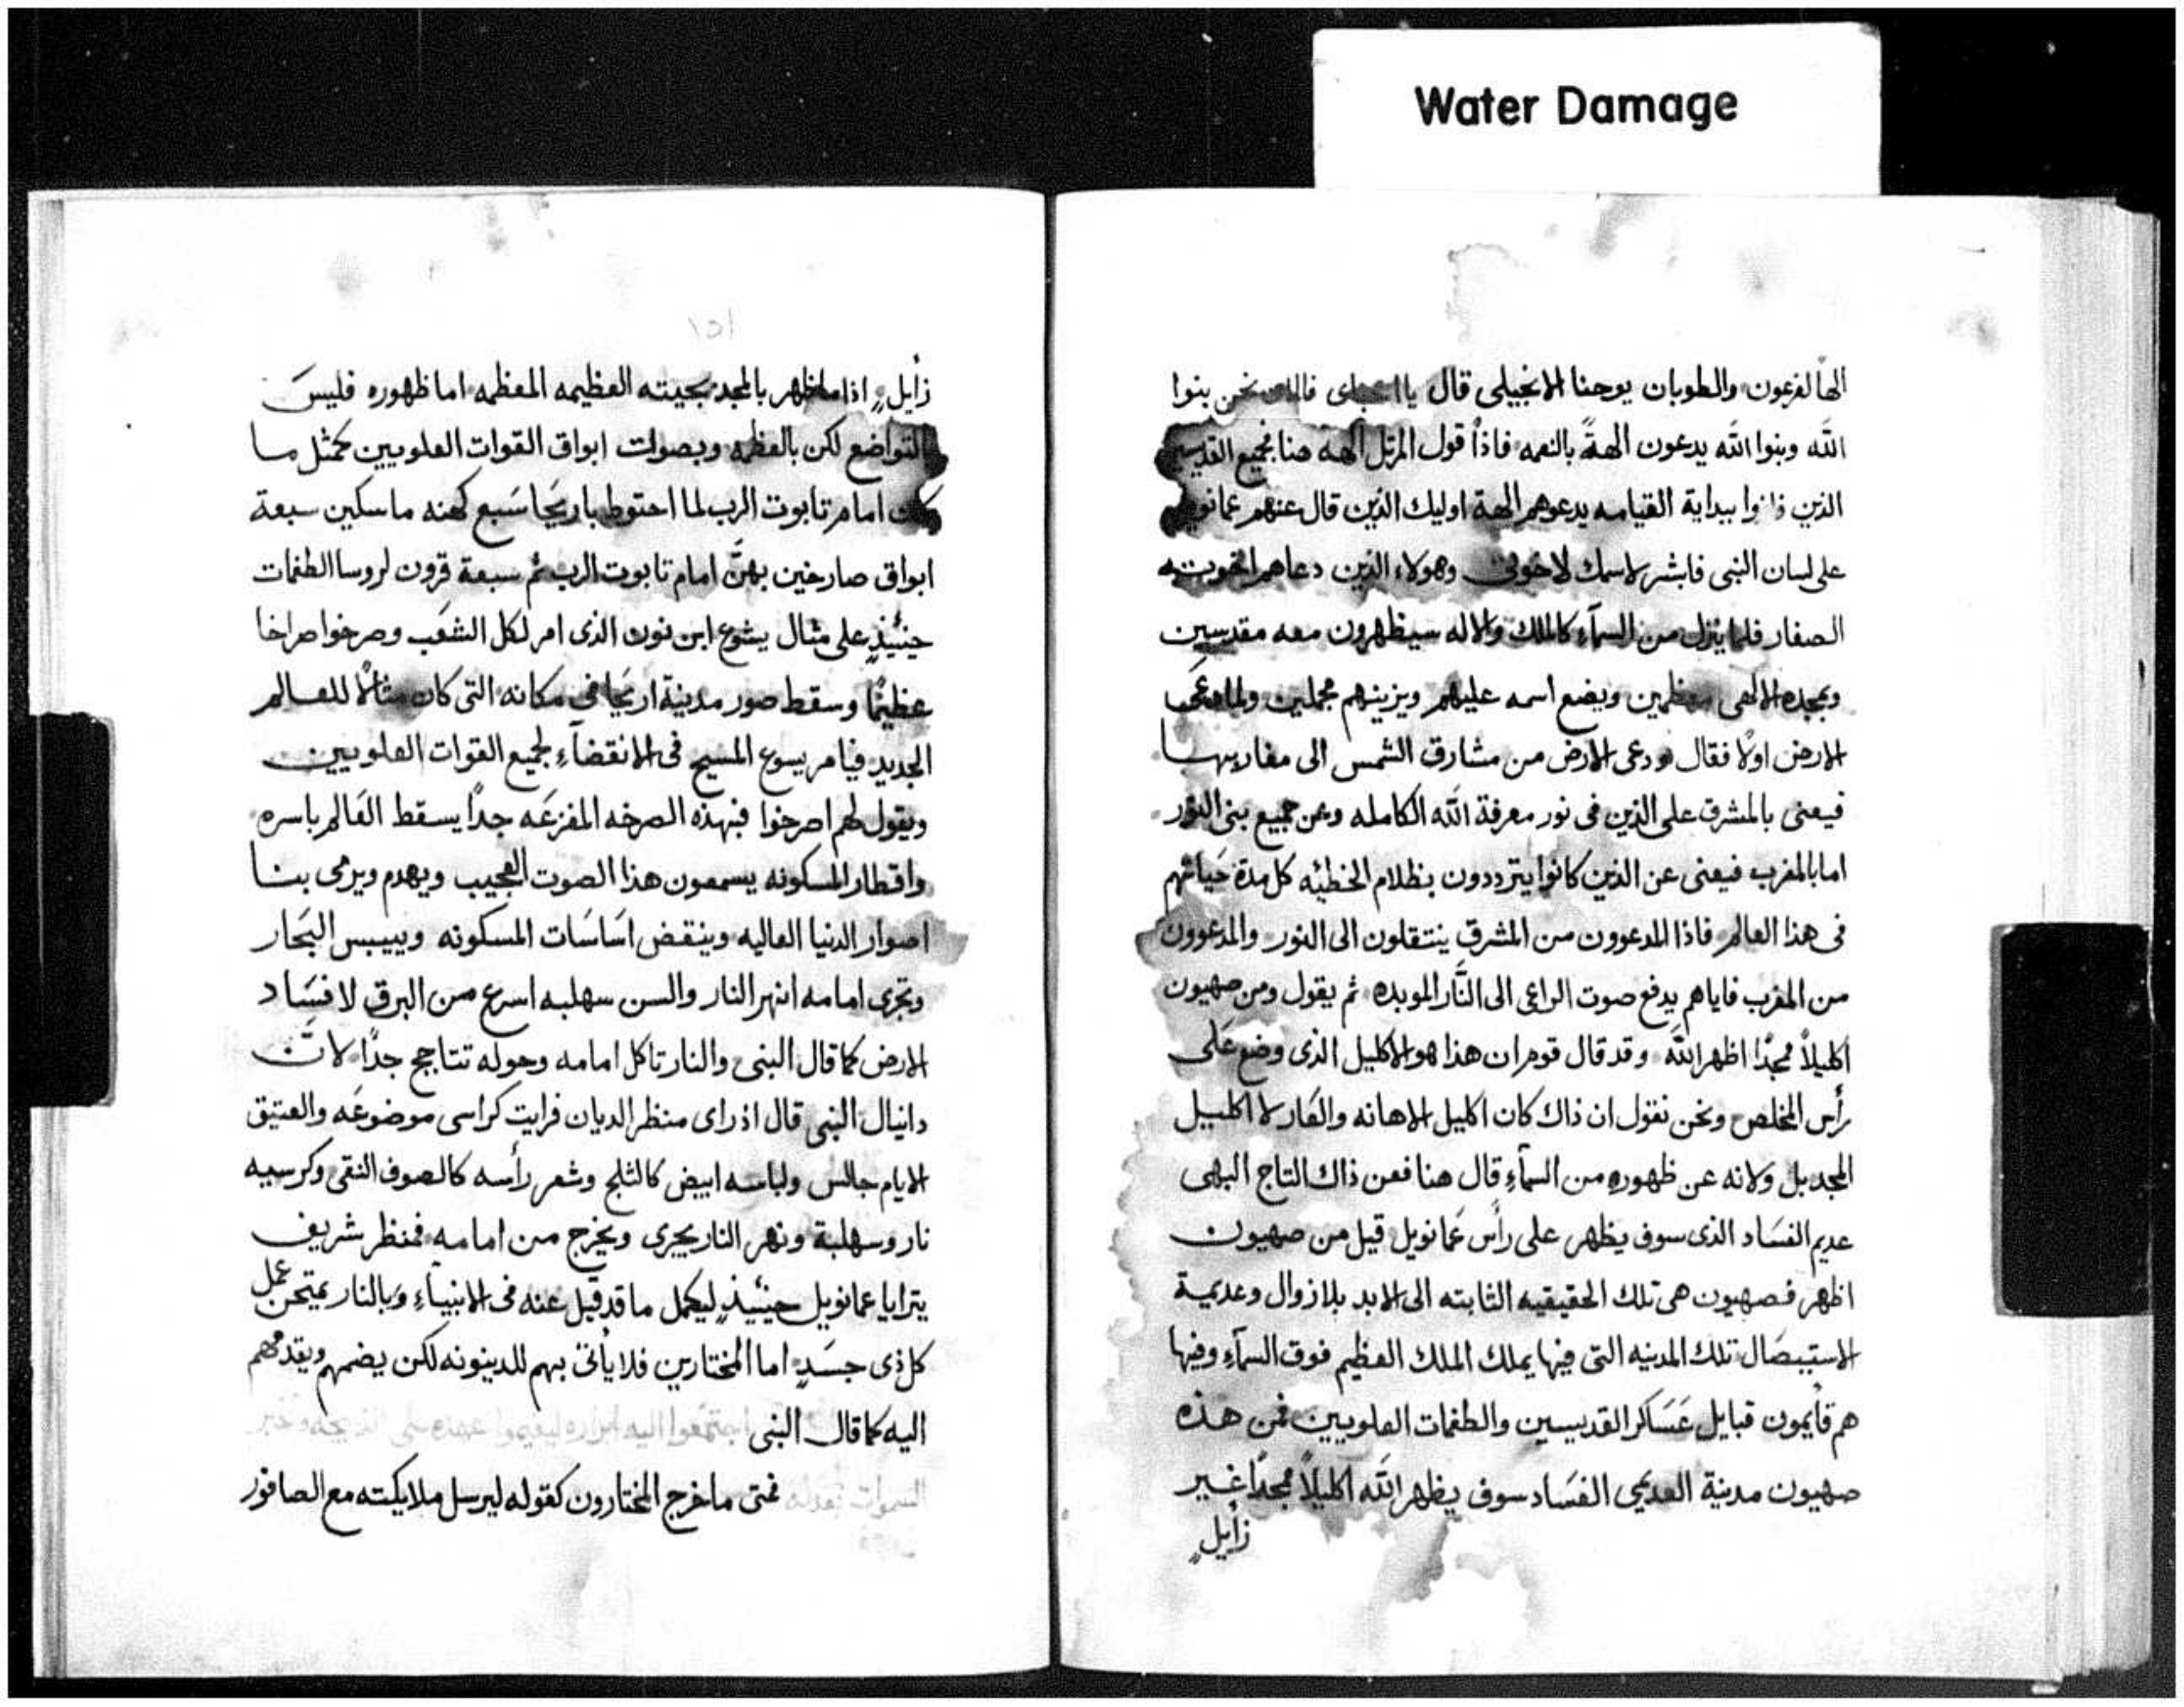 Water Damage
الهًا لفرعون والطوبان يوحنا الانجيلى قال يا نحن بنوا
الله وبنوا الله يدعون الهةً بالنعمه فاذًا قول المرتل الهه هنا لجميع القديسين
الذين بيداية القيامه يدعوهم الهة اوليك الذين قال عنهم عمانويل
على لسان النبى فابشر لاسمك لاخوتى وهولاء الذين دعاهم اخوته
الصغار فلما ينزل من السمآء كالملك والاله سيظهرون معه مقدسين
وبمجده الالهى معظمين ويضع اسمه عليهم ويزينهم مجملين
الارض اولًا فقال ودعى الارض من مشارق الشمس الى مغاربها
فيعنى بالمشرق على الذين فى نور معرفة الله الكامله وعن جميع بنى النور
اما بالمغرب فيعنى عن الذين كانوا يترددون بظلام الخطيّه كل مدة حياتهم
فى هذا العالم فاذا المدعوون من المشرق ينتقلون الى النور والمدعوون
من المغرب فاياهم يدفع صوت الراعى الى النَّار الموبده ثم يقول ومن صهيون
اكليلاً مجدًا اظهر الله وقد قال قوم ان هذا هو الاكليل الذى وضع على
رأس المخلص ونحن نقول ان ذاك كان اكليل الاهانه والعَار لا اكليل
المجد بل ولانه عن ظهوره من السمآءِ قال هنا فعن ذاك التاج البهى
عديم الفسَاد الذى سوف يظهر على رأس عمانويل قيل من صهيون
اظهر فصهيون هى تلك الحقيقيه الثابته الى الابد بلا زوال وعديمة
الاستيبصَال تلك المدينه التى فيها يملك الملك العظيم فوق السمآءِ وفيها
هم قأيمون قبايل عَسَاكر القديسين والطغمات العلويين فمن هذه
صهيون مدينة العديمى الفسَاد سوف يظهر الله اكليلاً مجدًا غير
زأيلٍ
١٥١
زأيلٍ اذا ما ظهر بالمجد بجيته العظيمه المعظمه اما ظهوره فليسَ
بالتواضع لكن بالعظمه وبصوات ابواق القوات العلويين كمثل ما
كان امام تابوت الرب لما احتوط باريحا سَبع كهنه ماسكين سبعة
ابواق صارخين بهنَّ امام تابوت الرب ثم سبعة قرون لروسا الطغمات
حينيُذٍ على مثال يشوع ابن نون الذى امر لكل الشعَب وصرخوا صراخا
عظيمًا وسقط صور مدينة اريحا فى مكانه التى كان مثالًا للعالم
الجديد فيامر يسوع المسيح فى الانقضآءِ لجميع القوات العلويين
ويقول لهم اصرخوا فبهذه الصرخه المفزعَه جدًا يسقط العَالم باسره
واقطار المسكونه يسمعون هذا الصوت العجيب ويهدم ويرمى بنا
اصوار الدنيا العاليه وينقض اسَاسَات المسكونه وييبس البحَار
وتجرى امامه انهر النار والسن سهلبه اسرع من البرق لافسَاد
الارض كما قال النبى والنار تاكل امامه وحوله تتاجج جدًا لانَّ
دانيال النبى قال اذ راى منظر الديان فرايت كراسى موضوعَه والعتيق
الايام جالس ولباسه ابيض كالثلج وشعر رأسه كالصوف النقى وكرسيه
نار وسهلبة ونهر النار يجرى ويخرج من امامه فمنظر شريف
يترايا عمانويل حينيُذٍ ليكمل ما قد قيل عنه فى الانبيآءِ وبالنار يمتحن عمل
كل ذى جسَدٍ اما المختارين فلا يأتى بهم للدينونه لكن يضمهم ويقدمهم
اليه كما قال النبى
فمتى ما خرج المختارون كقوله ليرسل ملايكته مع الصافور